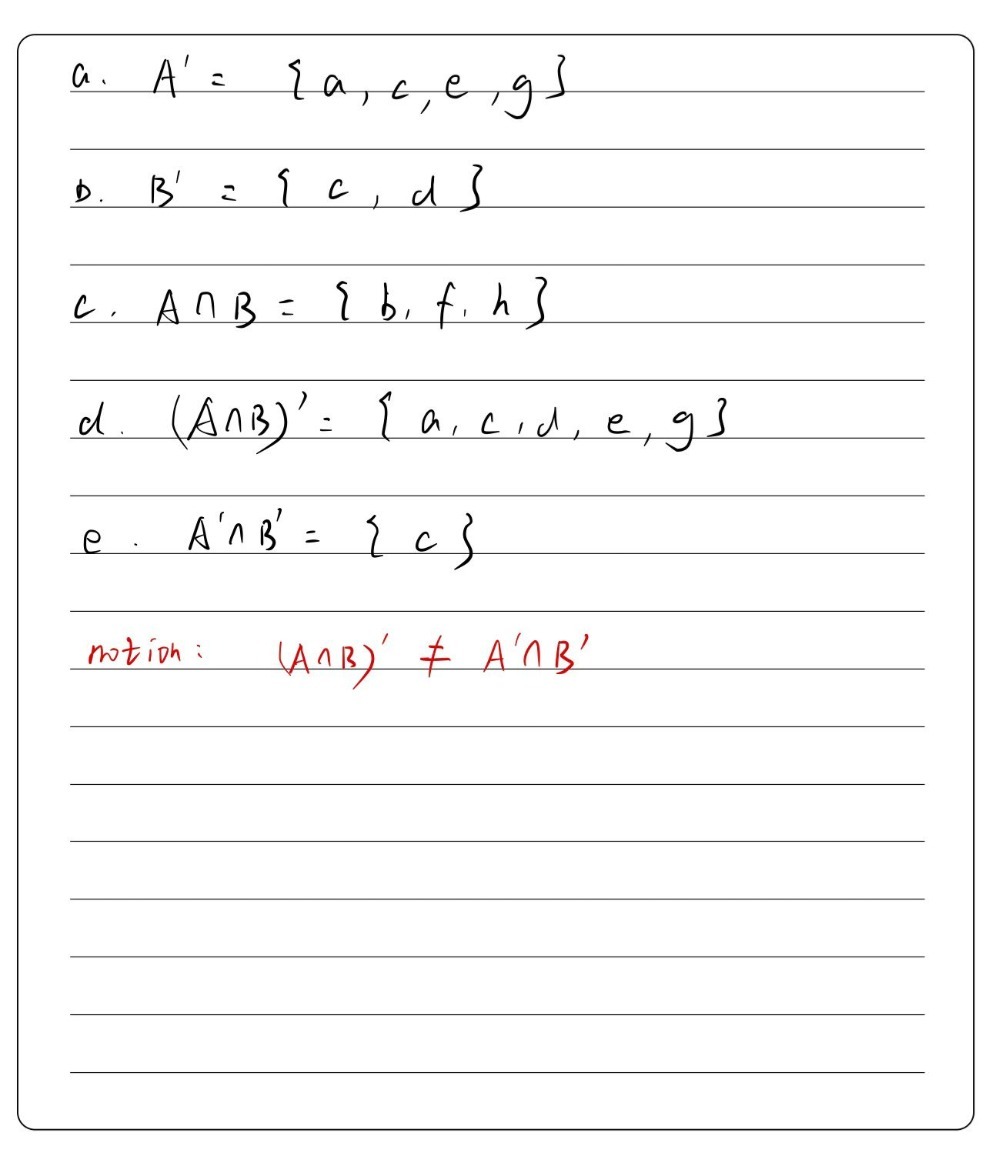 a. A' = {a, c, e, g}
b. B' = {c, d}
c. A ∩ B = {b, f, h}
d. (A∩B)' = {a, c, d, e, g}
e. A'∩B' = {c}
notion: (A∩B)' ≠ A'∩B'